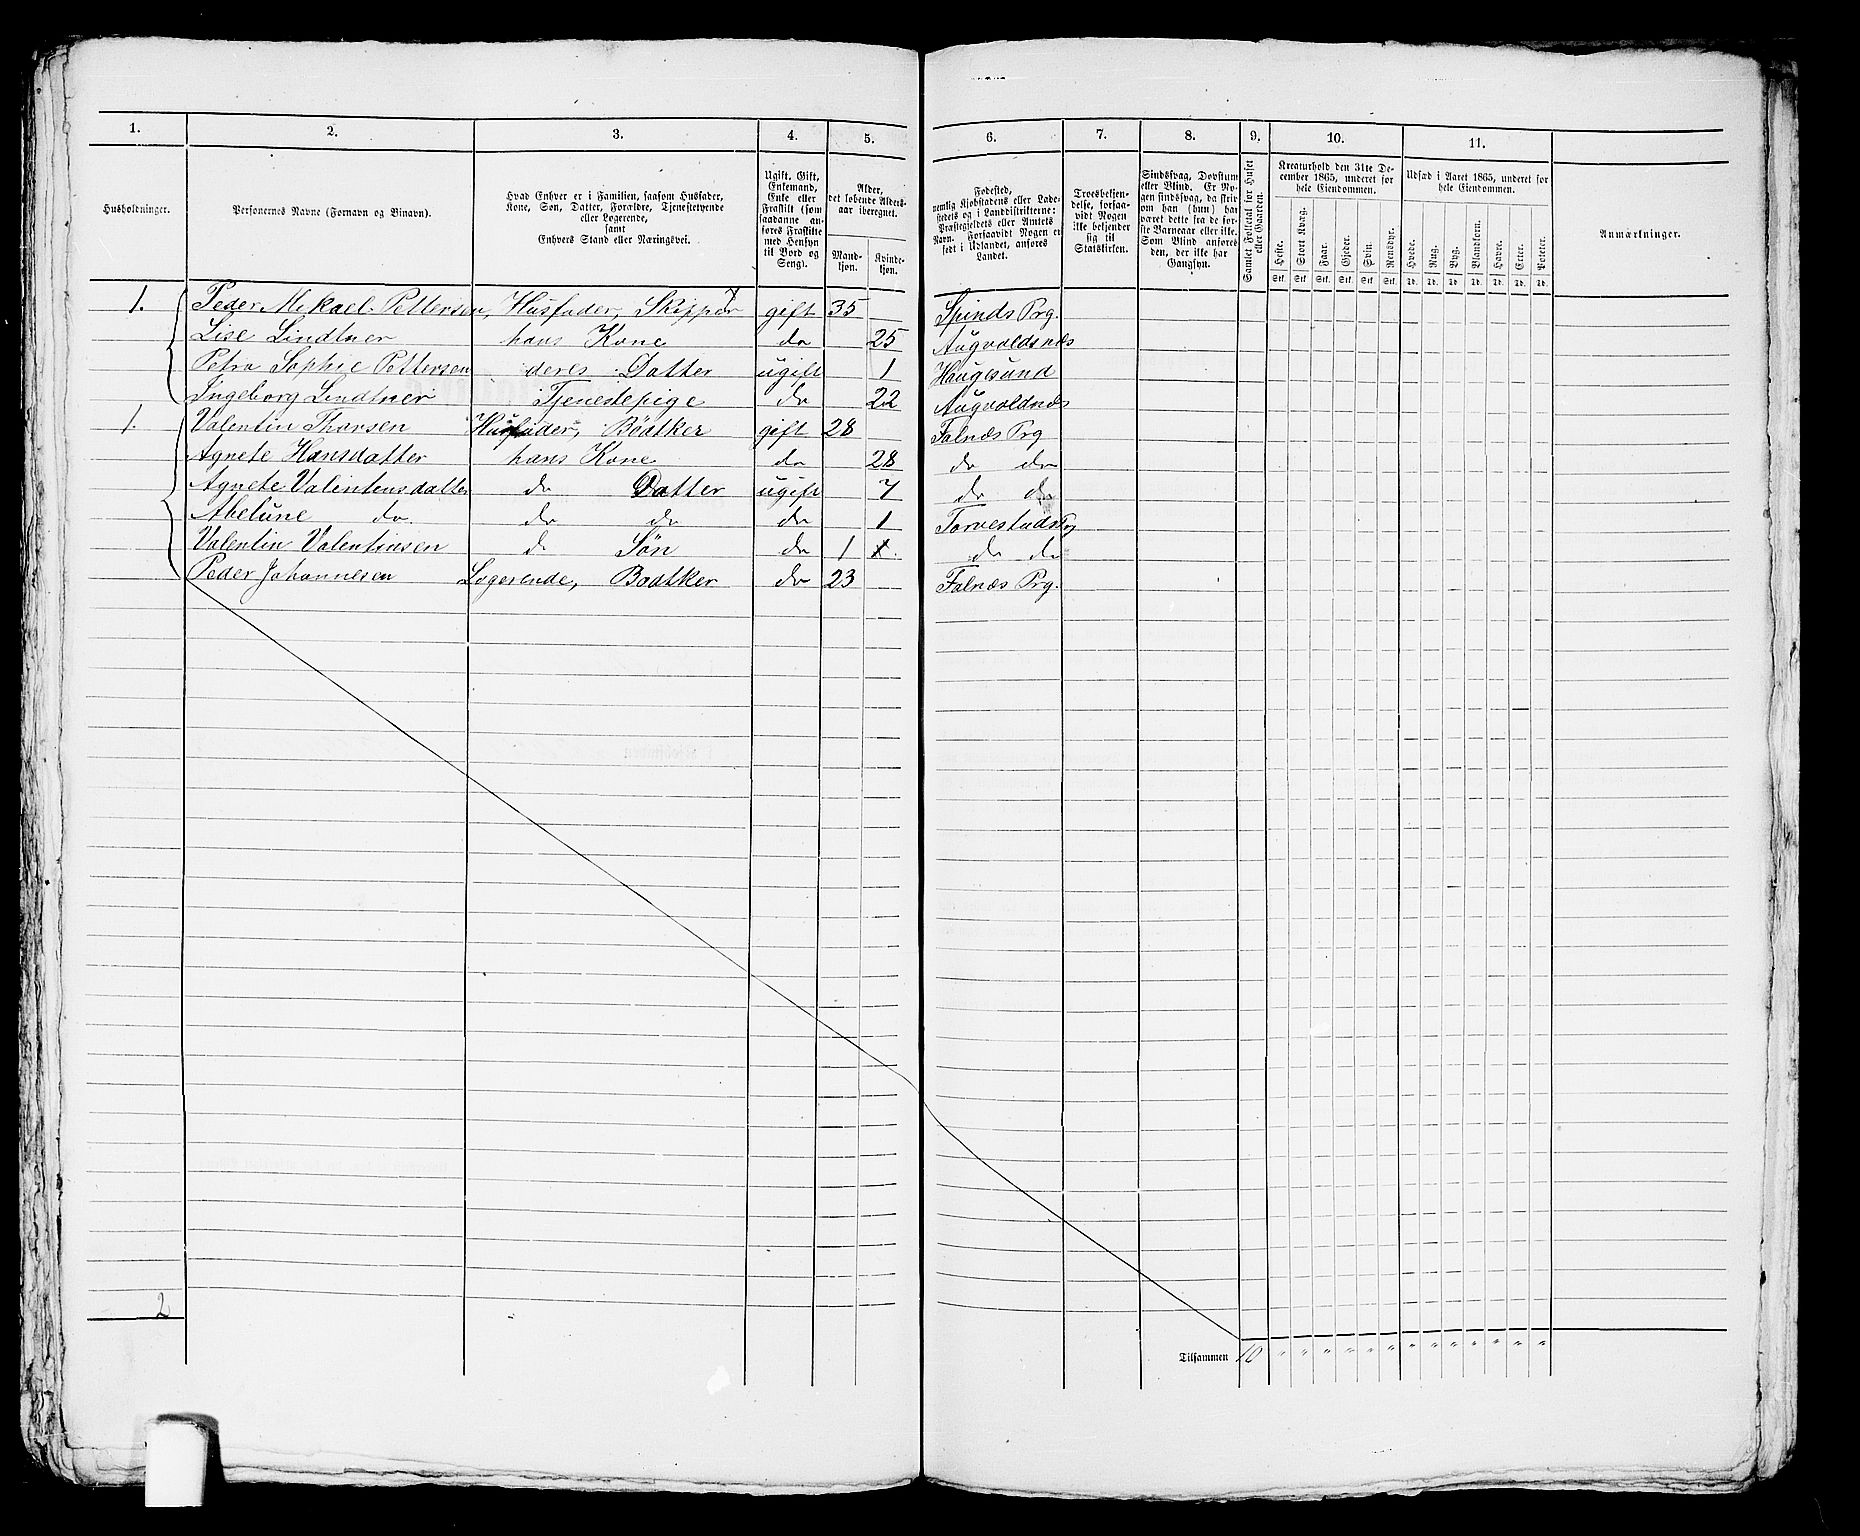 1. 2. 3. 4. 5. 6. 7. 8. 9. 10. 11.
Husholdninger.
Personernes Navne (Fornavn og Binavn).
Hvad Enhver er i Familien, saasom Husfader,
Kone, Søn, Datter, Forældre, Tjenestetyende
eller Logerende,
samt
Enhvers Stand eller Næringsvei.
Ugift, Gift,
Enkemand,
Enke eller
Fraskilt (som
saadanne an-
føres Fraskilte
med Hensyn
til Bord og
Seng).
Alder,
det løbende Alders-
aar iberegnet.
Mand-
kjøn.
Kvinde-
kjøn.
Fødested,
nemlig Kjøbstadens eller Lade-
stedets og i Landdistrikterne:
Præstegjeldets eller Amtets
Navn. Forsaavidt Nogen er
født i Udlandet, anføres
Landet.
Troesbekjen-
delse, forsaa-
vidt Nogen
ikke bekjender
sig til
Statskirken.
Sindssvag, Døvstum
eller Blind. Er No-
gen sindssvag, da skriv
om han (hun) har
været dette fra de før-
ste Barneaar eller ikke.
Som Blind anføres
den, der ikke har
Gangsyn.
Samlet Folketal for Huset
eller Gaarden.
Kreaturhold den 31te De-
cember 1865, underet for
hele Eiendommen.
Heste. Stort Kvæg. Faar. Gjeder. Svin. Rensdyr.
Stk. Stk. Stk. Stk. Stk. Stk.
Udsæd i Aaret 1865, underet for
hele Eiendommen.
Hvede. Rug. Byg. Blandkorn. Havre. Erter. Poteter.
Td. Td. Td. Td. Td. Td. Td.
Anmærkninger.
1. Peder Mikael Pettersen, Husfader, Skipper gift 35 Spinds Prg.
Lise Lindtner hans Kone do 25 Augvaldsnæs
Petra Sophie Pettersen deres Datter ugift 1 Haugesund
Ingeborg Lindtner Tjenestepige do 22 Augvaldnæs
1. Valentin Thorsen Husfader, Bödtker gift 28 Falnæs Prg
Agnete Hansdatter hans Kone do 28 do do
Agnete Valentensdatter do Datter ugift 7 do do
Abelune do. do do do 1 Torvestads Prg
Valentin Valentinsen do Sön do 1 do do
Peder Johannesen Logerende, Bødtker do 23 Falnæs Prg.
2
Tilsammen 10 " " " " " " " " " " " " "